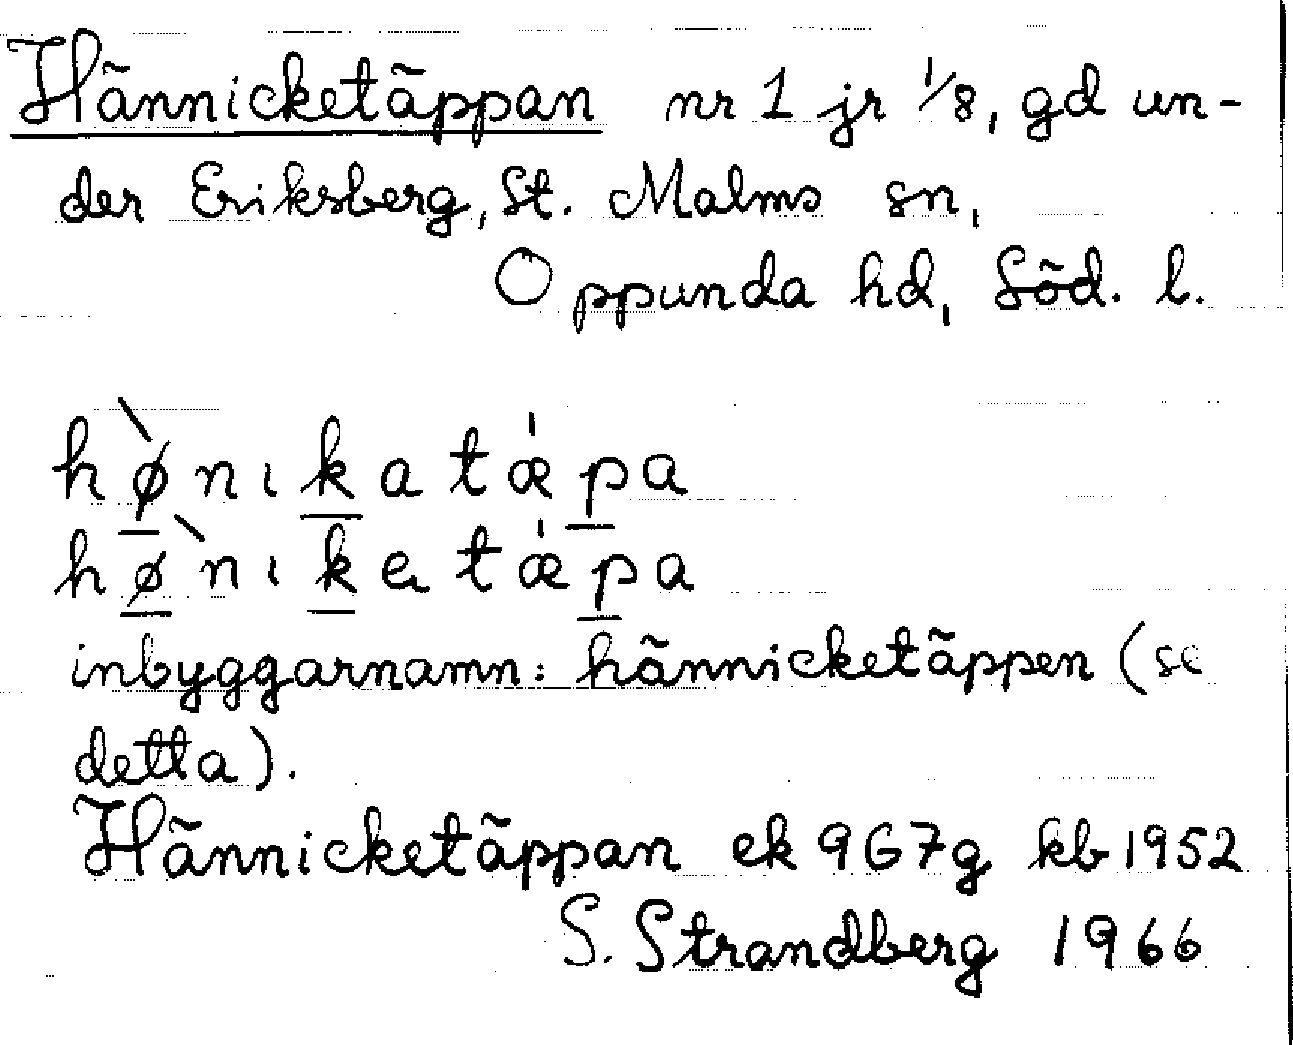 Hännicketäppan nr 1 jr 1/8, gd un-
der Eriksberg, St. Malms sn,
Oppunda hd, Söd. l.
hø̱̀nıḵatǽp̱a
hø̱̀nıḵetǽp̱a
inbyggarnamn: hännicketäppen (se
detta).
Hännicketäppan ek 967g kb 1952
S. Strandberg 1966